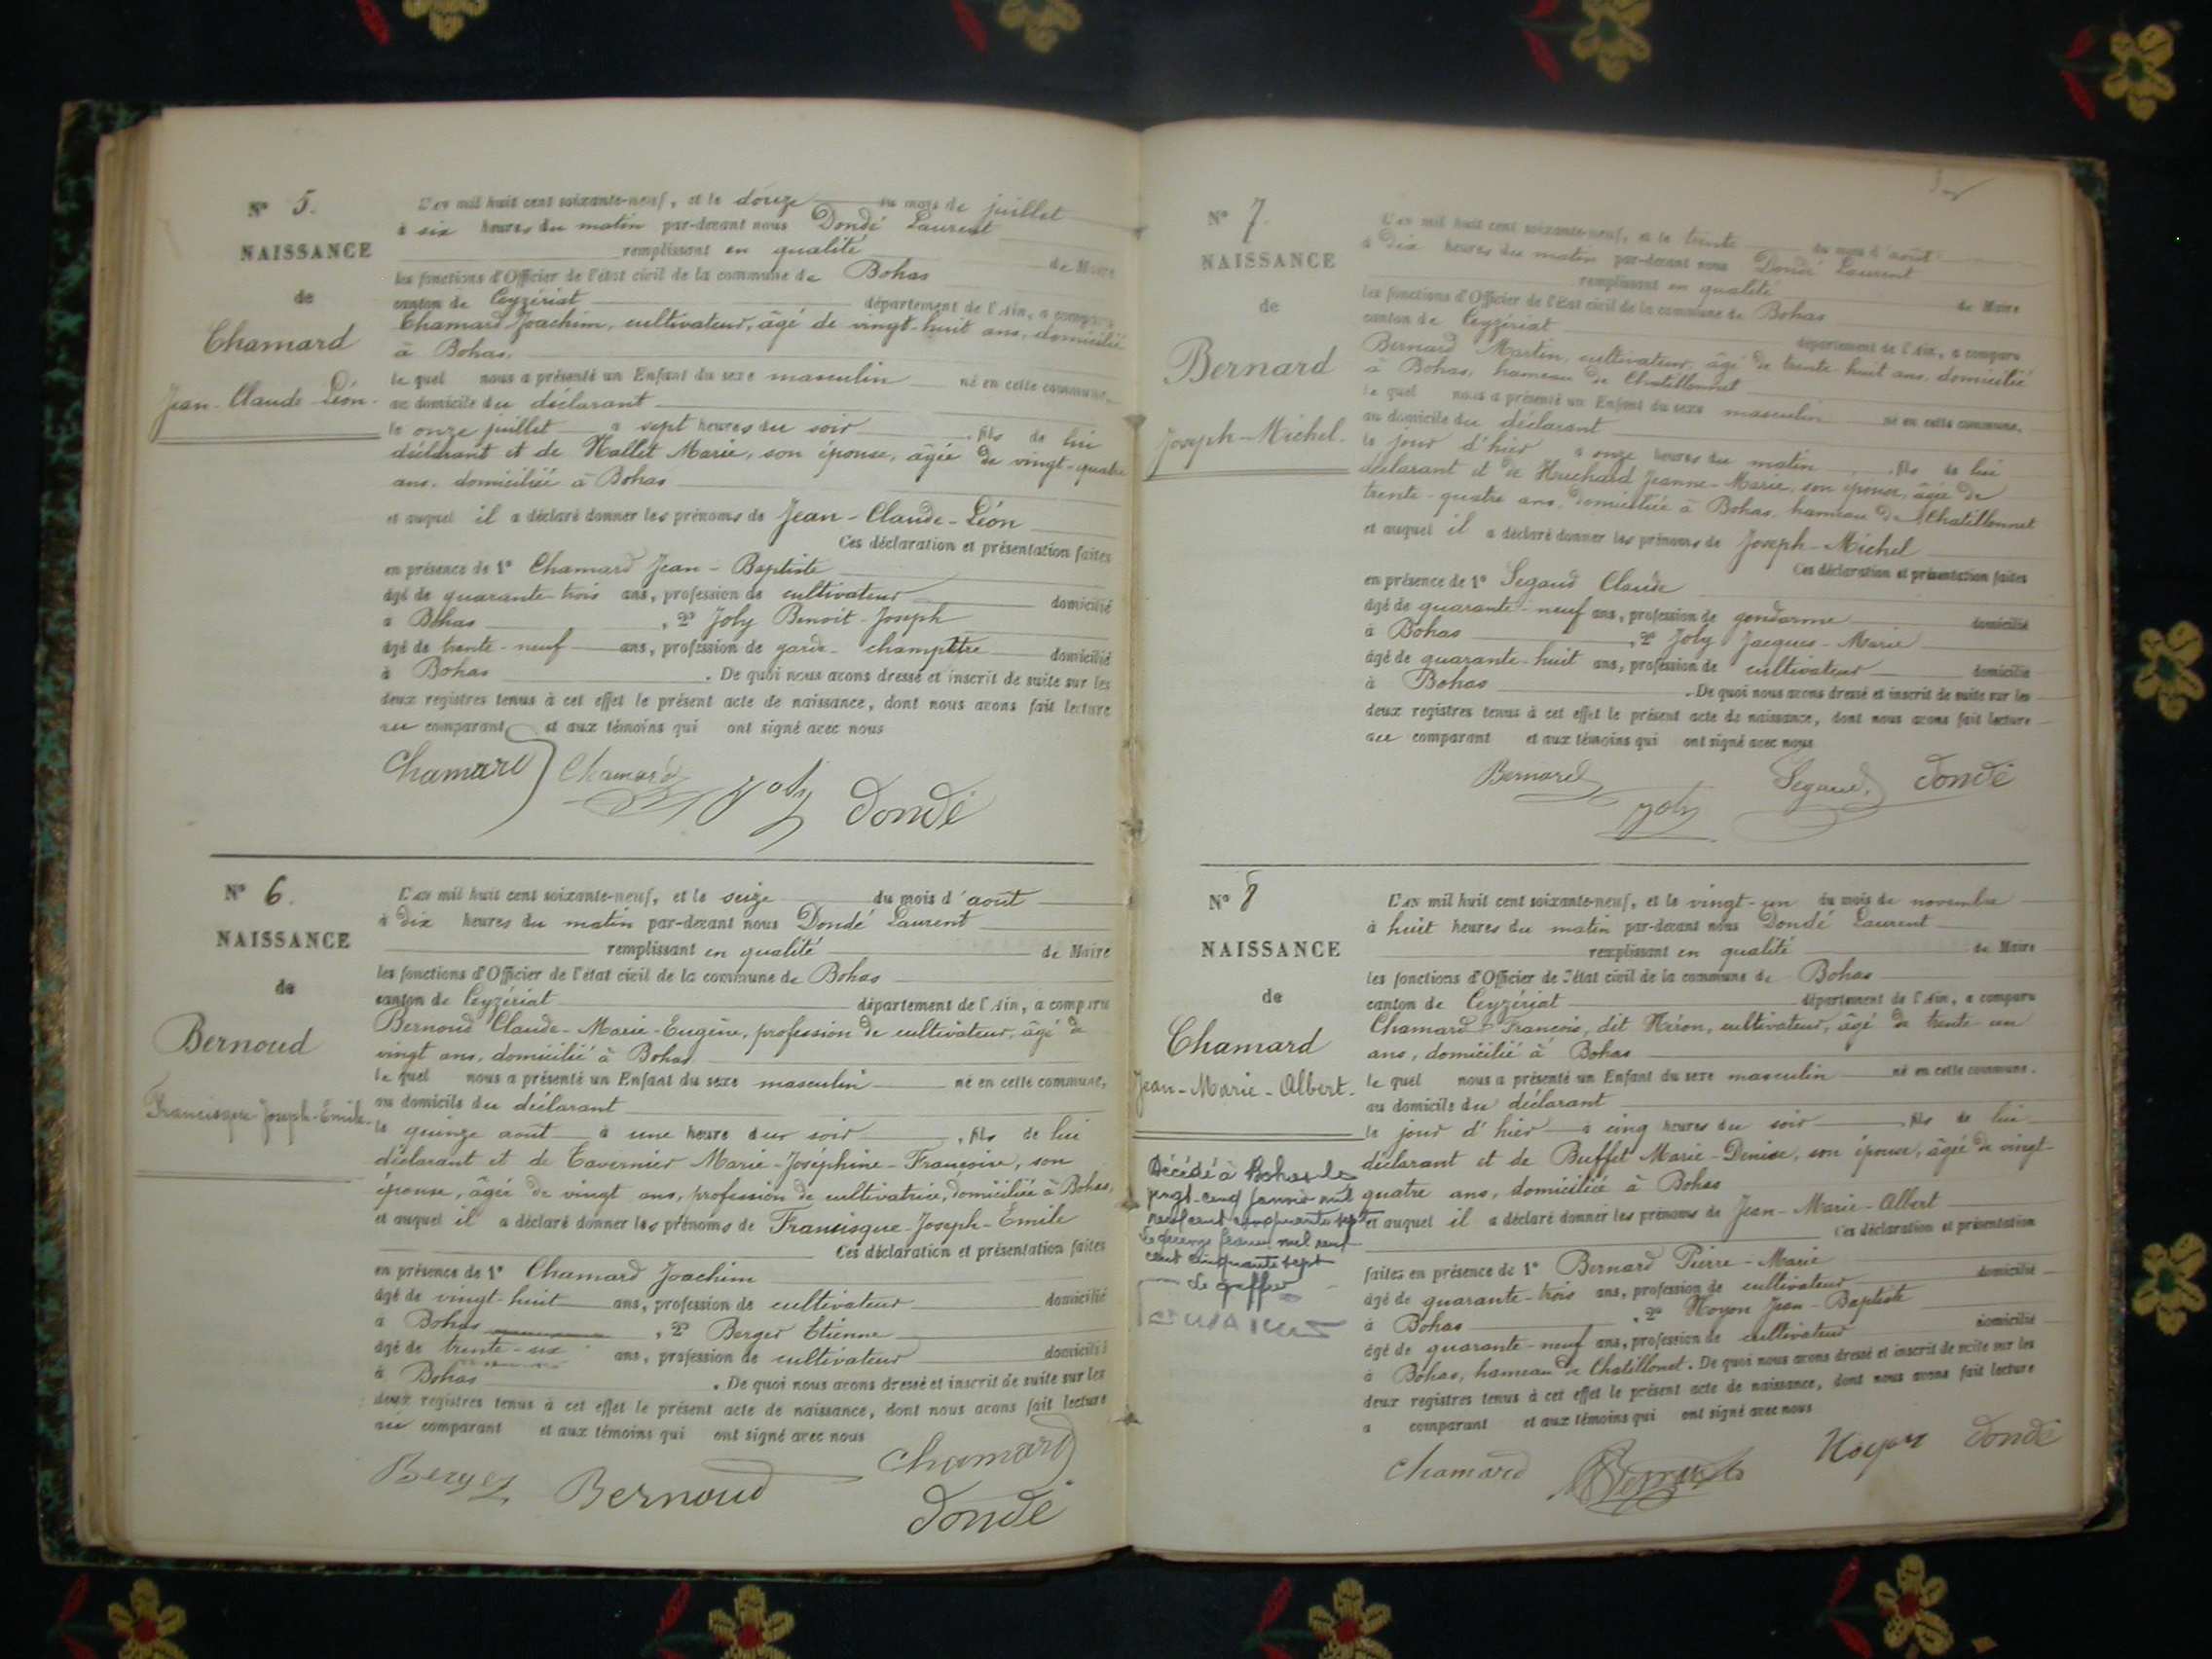 N° 5.
NAISSANCE
de
Chamard
Jean-Claude-Léon.
L'an mil huit cent soixante-neuf, et le douze du mois de juillet
à six heures du matin par-devant nous Dondé Laurent
remplissant en qualité de Maire
les fonctions d'Officier de l'état civil de la commune de Bohas
canton de Ceyzériat département de l'Ain, a comparu
Chamard Joachim, cultivateur, âgé de vingt-huit ans, domicilié
à Bohas,
le quel nous a présenté un Enfant du sexe masculin né en cette commune,
au domicile du déclarant
le onze juillet à sept heures du soir, fils de lui
déclarant et de Mallet Marie, son épouse, âgée de vingt-quatre
ans, domiciliée à Bohas
et auquel il a déclaré donner les prénoms de Jean-Claude-Léon
Ces déclaration et présentation faites
en présence de 1° Chamard Jean-Baptiste
âgé de quarante-trois ans, profession de cultivateur domicilié
à Bohas, 2° Joly Benoit-Joseph
âgé de trente-neuf ans, profession de garde-champêtre domicilié
à Bohas. De quoi nous avons dressé et inscrit de suite sur les
deux registres tenus à cet effet le présent acte de naissance, dont nous avons fait lecture
au comparant et aux témoins qui ont signé avec nous
Chamard Chamard Joly Dondé
N° 6.
NAISSANCE
de
Bernoud
Francisque-Joseph-Emile.
L'an mil huit cent soixante-neuf, et le seize du mois d'août
à dix heures du matin par-devant nous Dondé Laurent
remplissant en qualité de Maire
les fonctions d'Officier de l'état civil de la commune de Bohas
canton de Ceyzériat département de l'Ain, a comparu
Bernoud Claude-Marie-Eugène, profession de cultivateur, âgé de
vingt ans, domicilié à Bohas
le quel nous a présenté un Enfant du sexe masculin né en cette commune,
au domicile du déclarant
le quinze août à une heure du soir, fils de lui
déclarant et de Tavernier Marie-Joséphine-Françoise, son
épouse, âgée de vingt ans, profession de cultivatrice, domiciliée à Bohas,
et auquel il a déclaré donner les prénoms de Francisque-Joseph-Emile
Ces déclaration et présentation faites
en présence de 1° Chamard Joachim
âgé de vingt-huit ans, profession de cultivateur domicilié
à Bohas, 2° Berger Etienne
âgé de trente-six ans, profession de cultivateur domicilié
à Bohas. De quoi nous avons dressé et inscrit de suite sur les
deux registres tenus à cet effet le présent acte de naissance, dont nous avons fait lecture
au comparant et aux témoins qui ont signé avec nous
Berger Bernoud Chamard
Dondé
N° 7.
NAISSANCE
de
Bernard
Joseph-Michel.
L'an mil huit cent soixante-neuf, et le trente du mois d'août
à dix heures du matin par-devant nous Dondé Laurent
remplissant en qualité de Maire
les fonctions d'Officier de l'état civil de la commune de Bohas
canton de Ceyzériat département de l'Ain, a comparu
Bernard Martin, cultivateur, âgé de trente-huit ans, domicilié
à Bohas, hameau de Chatillonnet
le quel nous a présenté un Enfant du sexe masculin né en cette commune,
au domicile du déclarant
le jour d'hier à onze heures du matin, fils de lui
déclarant et de Huchard Jeanne-Marie, son épouse, âgée de
trente-quatre ans, domiciliée à Bohas, hameau de Chatillonnet
et auquel il a déclaré donner les prénoms de Joseph-Michel
Ces déclaration et présentation faites
en présence de 1° Segaud Claude
âgé de quarante-neuf ans, profession de gendarme domicilié
à Bohas, 2° Joly Jacques-Marie
âgé de quarante-huit ans, profession de cultivateur domicilié
à Bohas. De quoi nous avons dressé et inscrit de suite sur les
deux registres tenus à cet effet le présent acte de naissance, dont nous avons fait lecture
au comparant et aux témoins qui ont signé avec nous
Bernard Joly Segaud Dondé
N° 8
NAISSANCE
de
Chamard
Jean-Marie-Albert.
Décédé à Bohas le
vingt-cinq janvier mil
neuf cent cinquante sept
mil neuf
cent cinquante sept
Le greffier
L'an mil huit cent soixante-neuf, et le vingt-un du mois de novembre
à huit heures du matin par-devant nous Dondé Laurent
remplissant en qualité de Maire
les fonctions d'Officier de l'état civil de la commune de Bohas
canton de Ceyzériat département de l'Ain, a comparu
Chamard François, dit Néron, cultivateur, âgé de trente-un
ans, domicilié à Bohas
le quel nous a présenté un Enfant du sexe masculin né en cette commune.
au domicile du déclarant
le jour d'hier à cinq heures du soir, fils de lui
déclarant et de Buffet Marie-Denise, son épouse, âgée de vingt-
quatre ans, domiciliée à Bohas
et auquel il a déclaré donner les prénoms de Jean-Marie-Albert
Ces déclaration et présentation
faites en présence de 1° Bernard Pierre-Marie
âgé de quarante-trois ans, profession de cultivateur domicilié
à Bohas, 2° Noyon Jean-Baptiste
âgé de quarante-neuf ans, profession de cultivateur domicilié
à Bohas, hameau de Chatillonet. De quoi nous avons dressé et inscrit de suite sur les
deux registres tenus à cet effet le présent acte de naissance, dont nous avons fait lecture
a comparant et aux témoins qui ont signé avec nous
Chamard Bernard Noyon Dondé